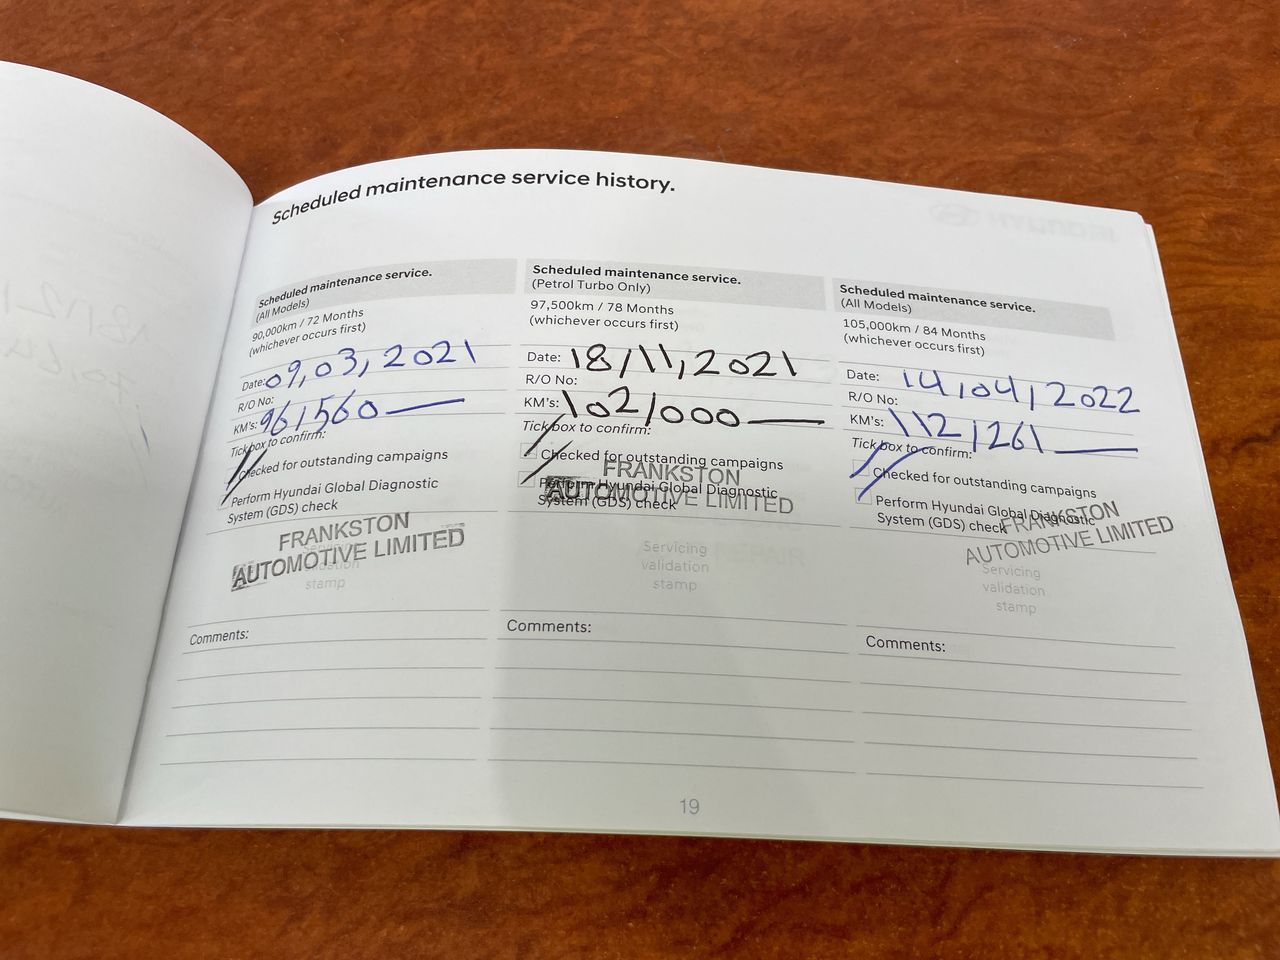 Scheduled maintenance service history.
Scheduled maintenance service.
(All Models)
90,000km / 72 Months
(whichever occurs first)
Date: 09,03,2021
R/O No:
KM's: 96/560
Tick box to confirm:
Checked for outstanding campaigns
Perform Hyundai Global Diagnostic
System (GDS) check
FRANKSTON
AUTOMOTIVE LIMITED
Servicing
validation
stamp
Comments:
Scheduled maintenance service.
(Petrol Turbo Only)
97,500km / 78 Months
(whichever occurs first)
Date: 18/11,2021
R/O No:
KM's: 102/000
Tick box to confirm:
Checked for outstanding campaigns
Perform Hyundai Global Diagnostic
System (GDS) check
FRANKSTON
AUTOMOTIVE LIMITED
Servicing
validation
stamp
Comments:
Scheduled maintenance service.
(All Models)
105,000km / 84 Months
(whichever occurs first)
Date: 14/04/2022
R/O No:
KM's: 112/261
Tick box to confirm:
Checked for outstanding campaigns
Perform Hyundai Global Diagnostic
System (GDS) check
FRANKSTON
AUTOMOTIVE LIMITED
Servicing
validation
stamp
Comments:
19